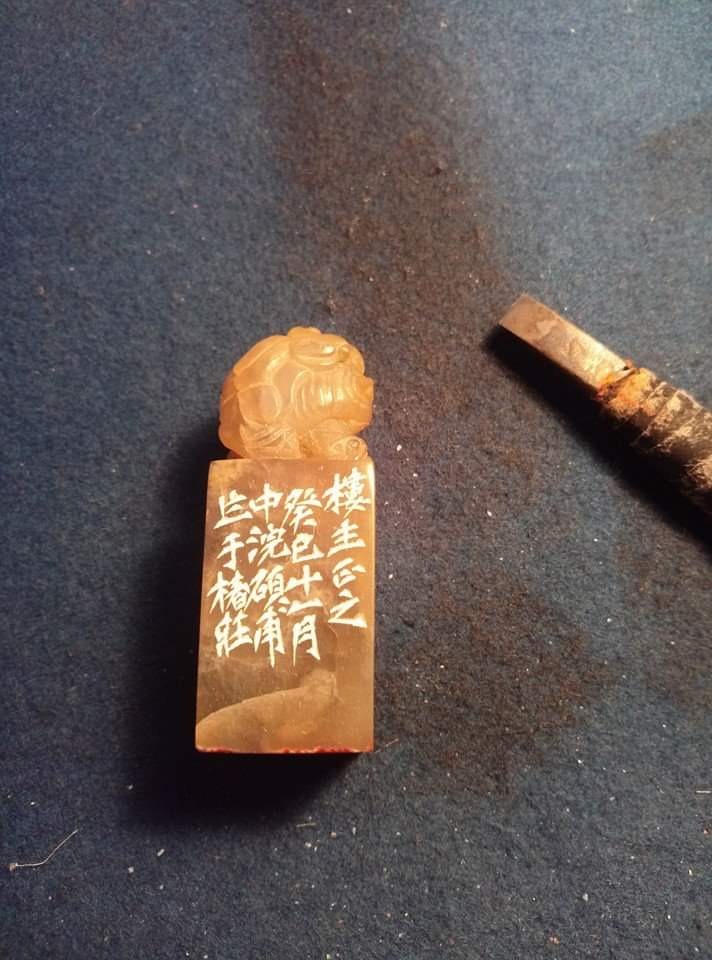 樓主正之
癸巳十一月
中浣碩甫
乍于楮莊